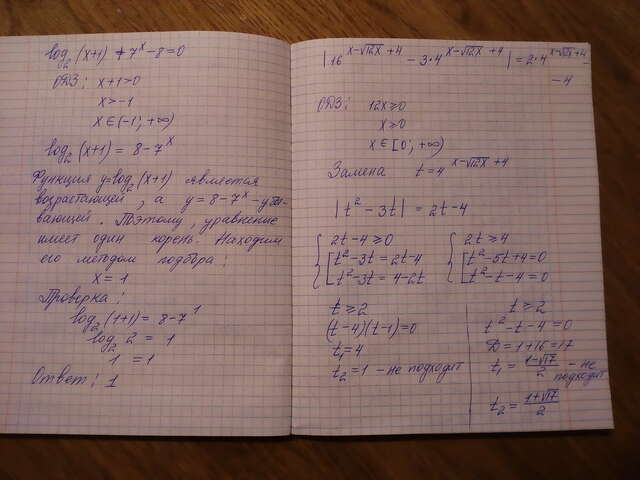 log₂(x+1) + 7ˣ - 8 = 0
ОДЗ: x+1>0
x>-1
x∈(-1; +∞)
log₂(x+1) = 8-7ˣ
Функция y=log₂(x+1) является
возрастающей, а y = 8-7ˣ - убы-
вающей. Поэтому, уравнение
имеет один корень. Находим
его методом подбора:
x = 1
Проверка:
log₂(1+1) = 8-7¹
log₂ 2 = 1
1 = 1
Ответ: 1
|16^(x-√12x+4) - 3·4^(x-√12x+4)| = 2·4^(x-√12x+4) -
-4
ОДЗ: 12x≥0
x≥0
x∈[0; +∞)
Замена t = 4^(x-√12x+4)
|t²-3t| = 2t-4
{ 2t-4≥0
[ t²-3t = 2t-4
[ t²-3t = 4-2t
{ 2t≥4
[ t²-5t+4=0
[ t²-t-4=0
t≥2
(t-4)(t-1)=0
t₁=4
t₂=1 - не подходит
t≥2
t²-t-4=0
D=1+16=17
t₁ = (1-√17)/2 - не
подходит
t₂ = (1+√17)/2